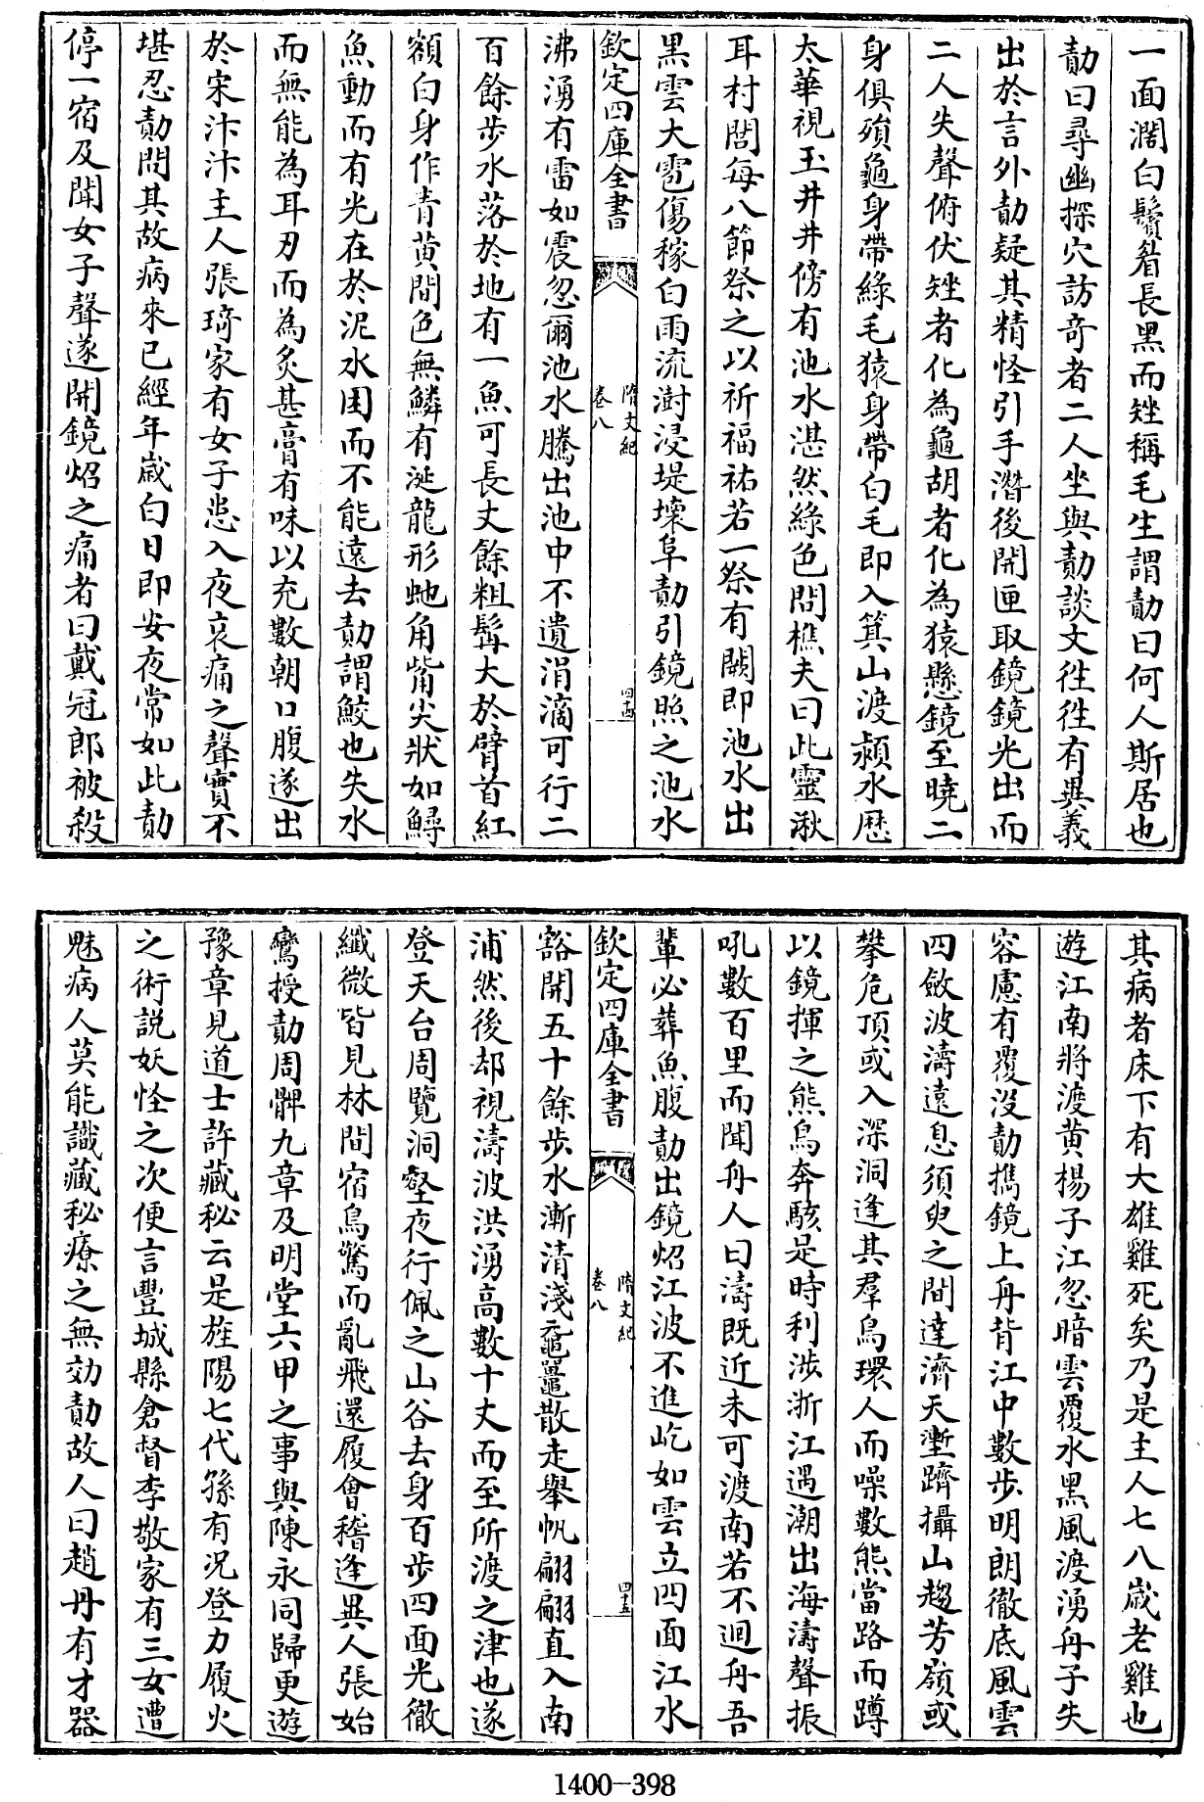 一面濶白鬢眉長黑而矬稱毛生謂勣曰何人斯居也
勣曰尋幽探穴訪竒者二人坐與勣談文徃徃有異義
出於言外勣疑其精怪引手潛後開匣取鏡鏡光出而
二人失聲俯伏矬者化為龜胡者化為猿懸鏡至曉二
身俱殞龜身帶緑毛猿身帶白毛即入箕山渡潁水歴
太華視玉井井傍有池水湛然緑色問樵夫曰此靈湫
耳村閭每八節祭之以祈福祐若一祭有闕即池水出
黒雲大雹傷稼白雨流澍浸堤壞阜勣引鏡照之池水
欽定四庫全書
隋文紀
卷八
四十四
沸湧有雷如震忽爾池水騰出池中不遺涓滴可行二
百餘步水落於地有一魚可長丈餘粗髥大於臂首紅
額白身作青黄間色無鱗有涎龍形虵角觜尖狀如鱘
魚動而有光在於泥水困而不能遠去勣謂鮫也失水
而無能為耳刃而為炙甚膏有味以充數朝口腹遂出
於宋汴汴主人張琦家有女子患入夜哀痛之聲實不
堪忍勣問其故病來已經年嵗白日即安夜常如此勣
停一宿及聞女子聲遂開鏡炤之痛者曰戴冠郎被殺
其病者床下有大雄雞死矣乃是主人七八嵗老雞也
遊江南將渡黄楊子江忽暗雲覆水黒風渡湧舟子失
容慮有覆没勣攜鏡上舟背江中數步明朗徹底風雲
四斂波濤遠息須臾之間達濟天塹躋攝山趨芳嶺或
攀危頂或入深洞逢其羣鳥環人而噪數熊當路而蹲
以鏡揮之熊鳥奔駭是時利涉浙江遇潮出海濤聲振
吼數百里而聞舟人曰濤既近未可渡南若不迴舟吾
輩必葬魚腹勣出鏡炤江波不進屹如雲立四面江水
欽定四庫全書
隋文紀
卷八
四十五
豁開五十餘步水漸清淺黿鼉散走舉帆翩翩直入南
浦然後却視濤波洪湧高數十丈而至所渡之津也遂
登天台周覽洞壑夜行佩之山谷去身百步四面光徹
纖微皆見林間宿鳥驚而亂飛還履會稽逢異人張始
鸞授勣周髀九章及明堂六甲之事與陳永同歸更遊
豫章見道士許藏秘云是旌陽七代孫有况登力履火
之術説妖怪之次便言豐城縣倉督李敬家有三女遭
魅病人莫能識藏秘療之無効勣故人曰趙丹有才器
1400-398